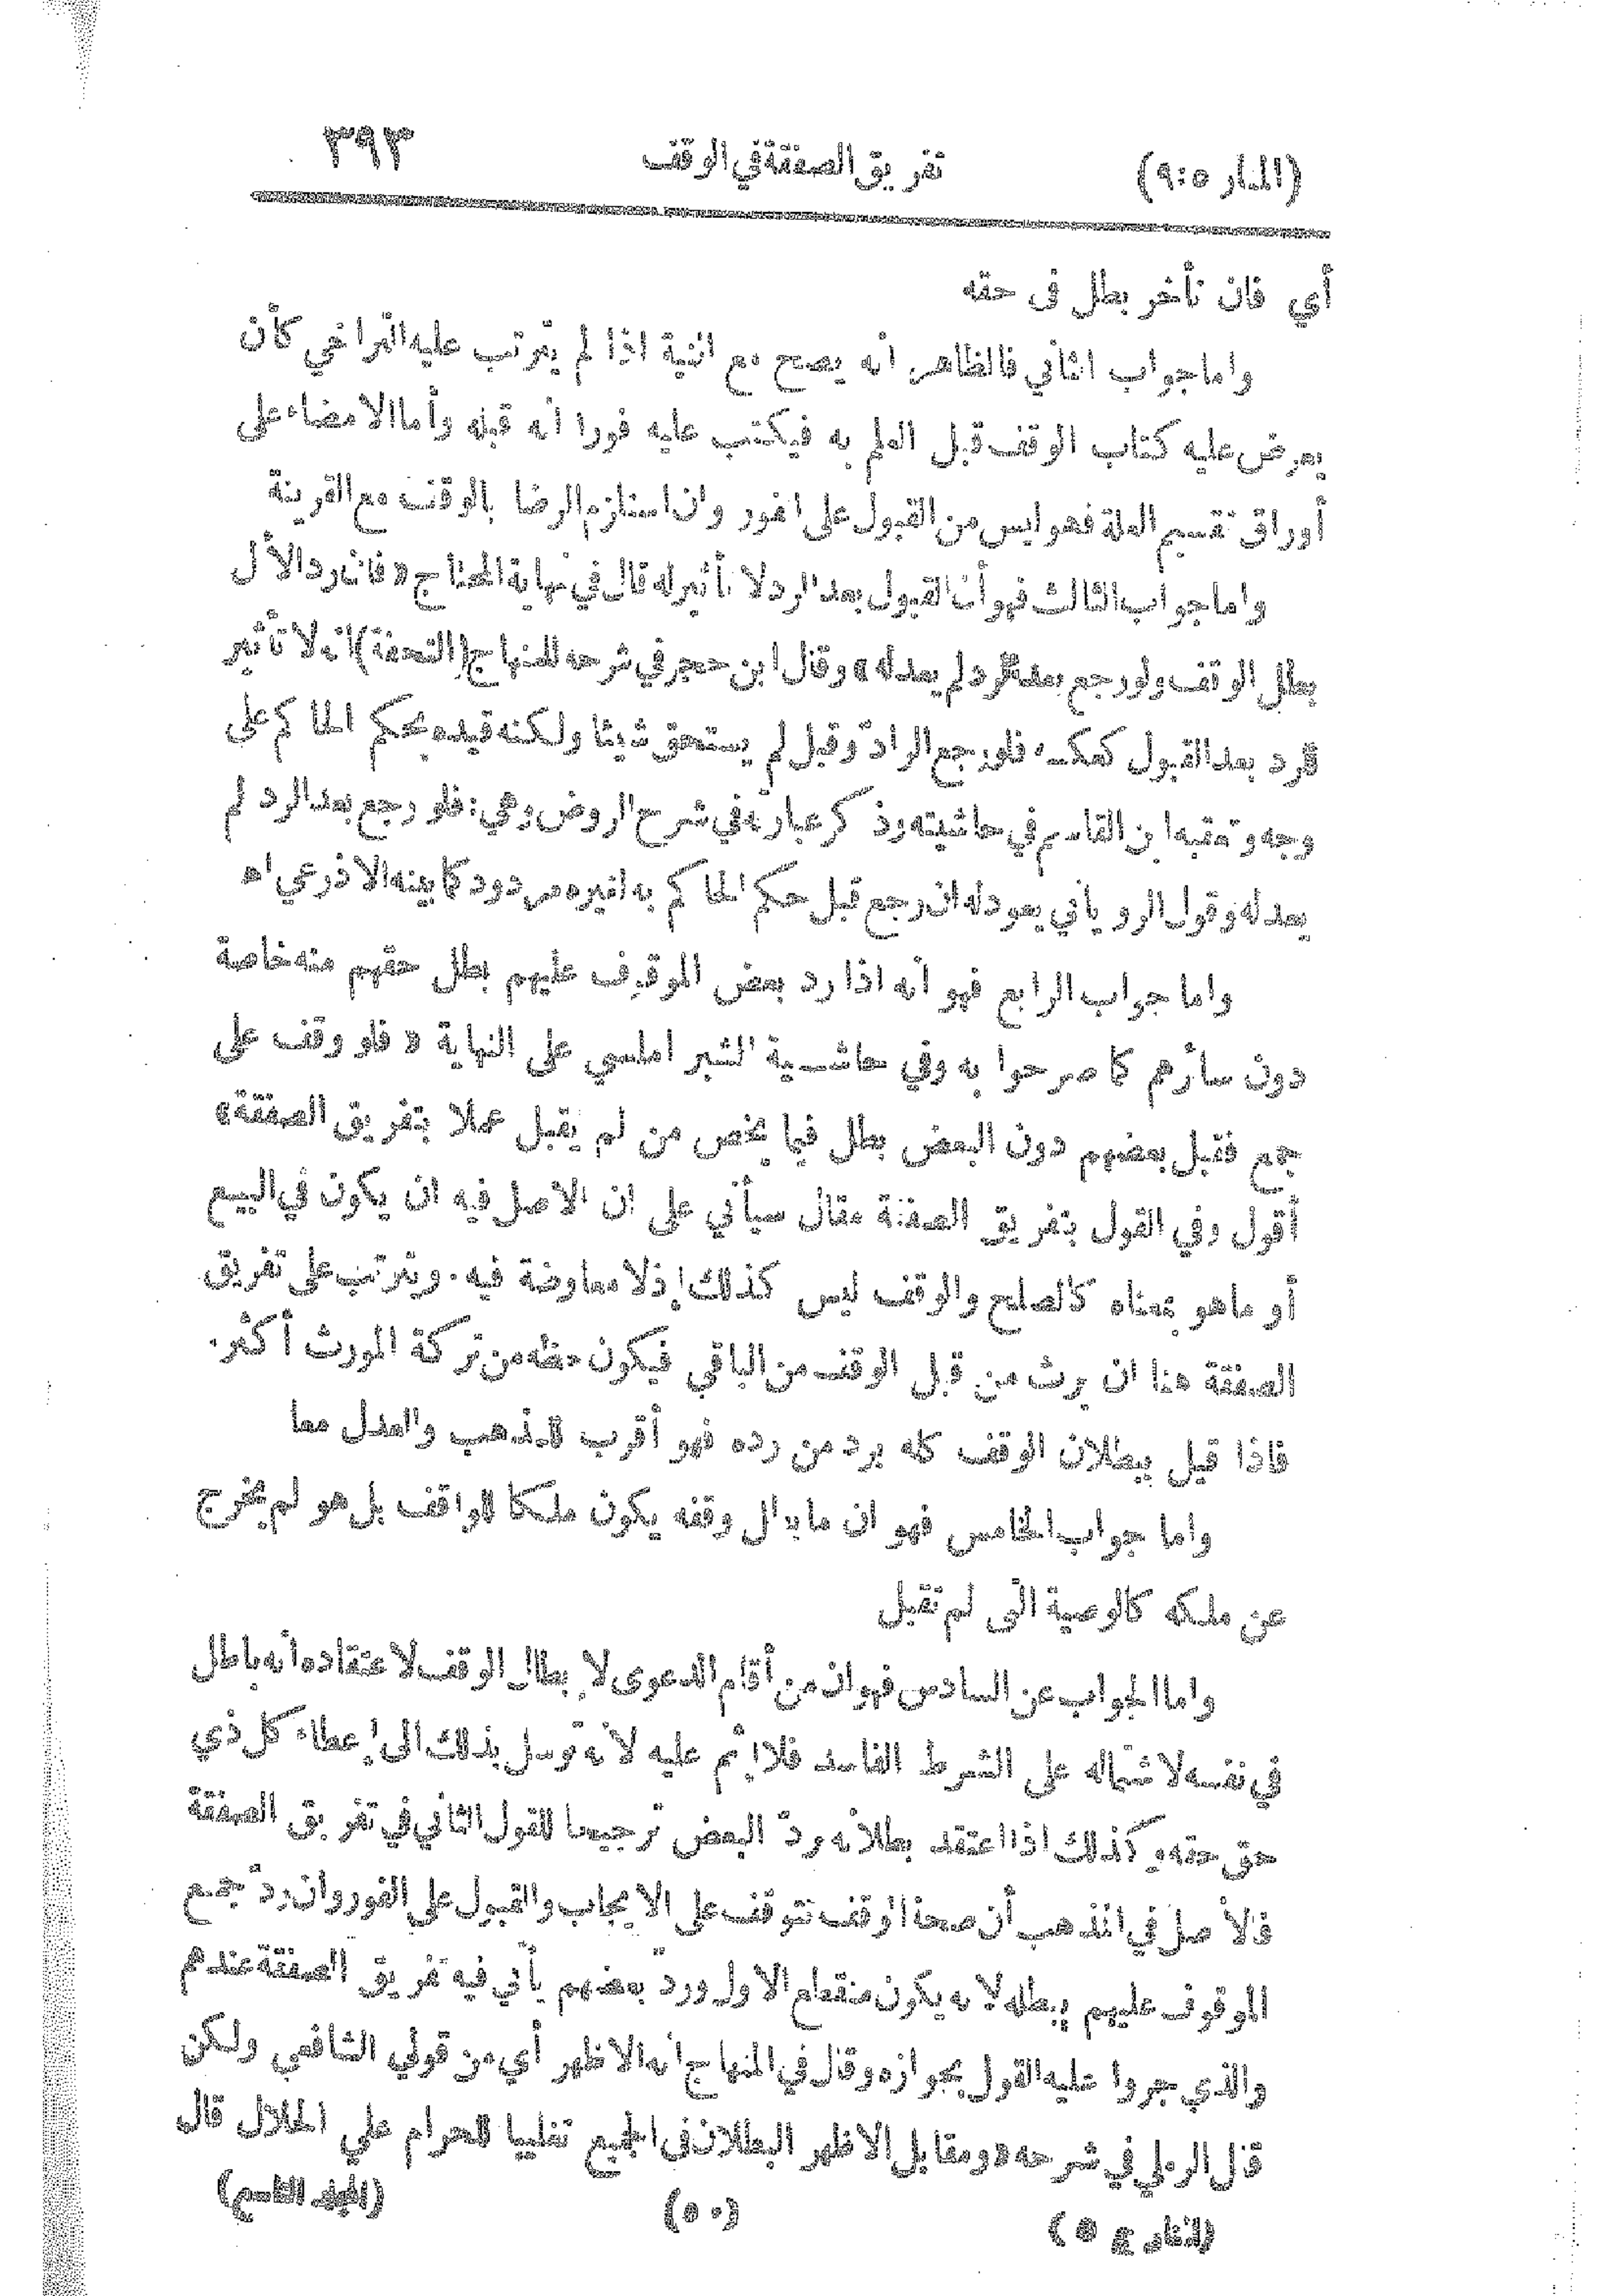 (المنار ٥:٩) تفريق الصفقة في الوقف ٣٩٣
أي فان تأخر بطل في حقه
واما جواب الثاني فالظاهر أنه يصح مع النية اذا لم يترتب عليه التراخي كأن
يعرض عليه كتاب الوقف قبل العلم به فيكتب عليه فورا أنه قبله وأما الامضاء على
أوراق تقسيم الغلة فهو ليس من القبول على الفور وان استلزم الرضا بالوقف مع القرينة
واما جواب الثالث فهو أن القبول بعد الرد لا تأثير له قال في نهاية المحتاج « فان رد الأول
بطل الوقف ولو رجع بعد الرد لم يعد له » وقال ابن حجر في شرحه للمنهاج (التحفة) انه لا تأثير
للرد بعد القبول كعكسه فلو رجع الرادّ وقبل لم يستحق شيئا ولكنه قيده بحكم الحاكم على
وجه وتعقبه ابن القاسم في حاشيته وذكر عبارته في شرح الروض وهي : فلو رجع بعد الرد لم
يعد له وقول الروياني يعود له ان رجع قبل حكم الحاكم به لغيره مردود كما بينه الاذرعي اه
واما جواب الرابع فهو أنه اذا رد بعض الموقوف عليهم بطل حقهم منه خاصة
دون سائرهم كما صرحوا به وفي حاشية الشبراملسي على النهاية « فلو وقف على
جمع فقبل بعضهم دون البعض بطل فيما يخص من لم يقبل عملا بتفريق الصفقة »
أقول وفي القول بتفريق الصفقة مقال سيأتي على ان الاصل فيه ان يكون في البيع
أو ما هو بمعناه كالصلح والوقف ليس كذلك إذ لا معاوضة فيه. ويترتب على تفريق
الصفقة هنا ان يرث من قبل الوقف من الباقي فيكون حظه من تركة المورث أكثر.
فاذا قيل ببطلان الوقف كله برد من رده فهو أقرب للمذهب والعدل معا
واما جواب الخامس فهو ان ما بطل وقفه يكون ملكا للواقف بل هو لم يخرج
عن ملكه كالوصية التي لم تقبل
واما الجواب عن السادس فهو ان من أقام الدعوى لإبطال الوقف لاعتقاده أنه باطل
في نفسه لاشتماله على الشرط الفاسد فلا إثم عليه لأنه توسل بذلك الى إعطاء كل ذي
حق حقه وكذلك اذا اعتقد بطلانه بردّ البعض ترجيحا للقول الثاني في تفريق الصفقة
فالأصل في المذهب أن صحة الوقف تتوقف على الايجاب والقبول على الفور وان ردّ جميع
الموقوف عليهم يبطله لأنه يكون منقطع الاول وردّ بعضهم يأتي فيه تفريق الصفقة عندهم
والذي جروا عليه القول بجوازه وقال في المنهاج انه الاظهر أي من قولي الشافعي ولكن
قال الرملي في شرحه « ومقابل الاظهر البطلان في الجميع تغليبا للحرام على الحلال قال
(المنار ج ٥) (٥٠) (المجلد التاسع)